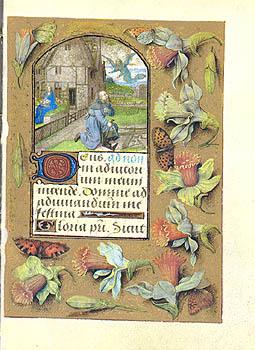 Deus. ad non
in adiutori
um meum
intende. Domine ad
adiuuandum me
festina
Gloria pr̄i. Sicut